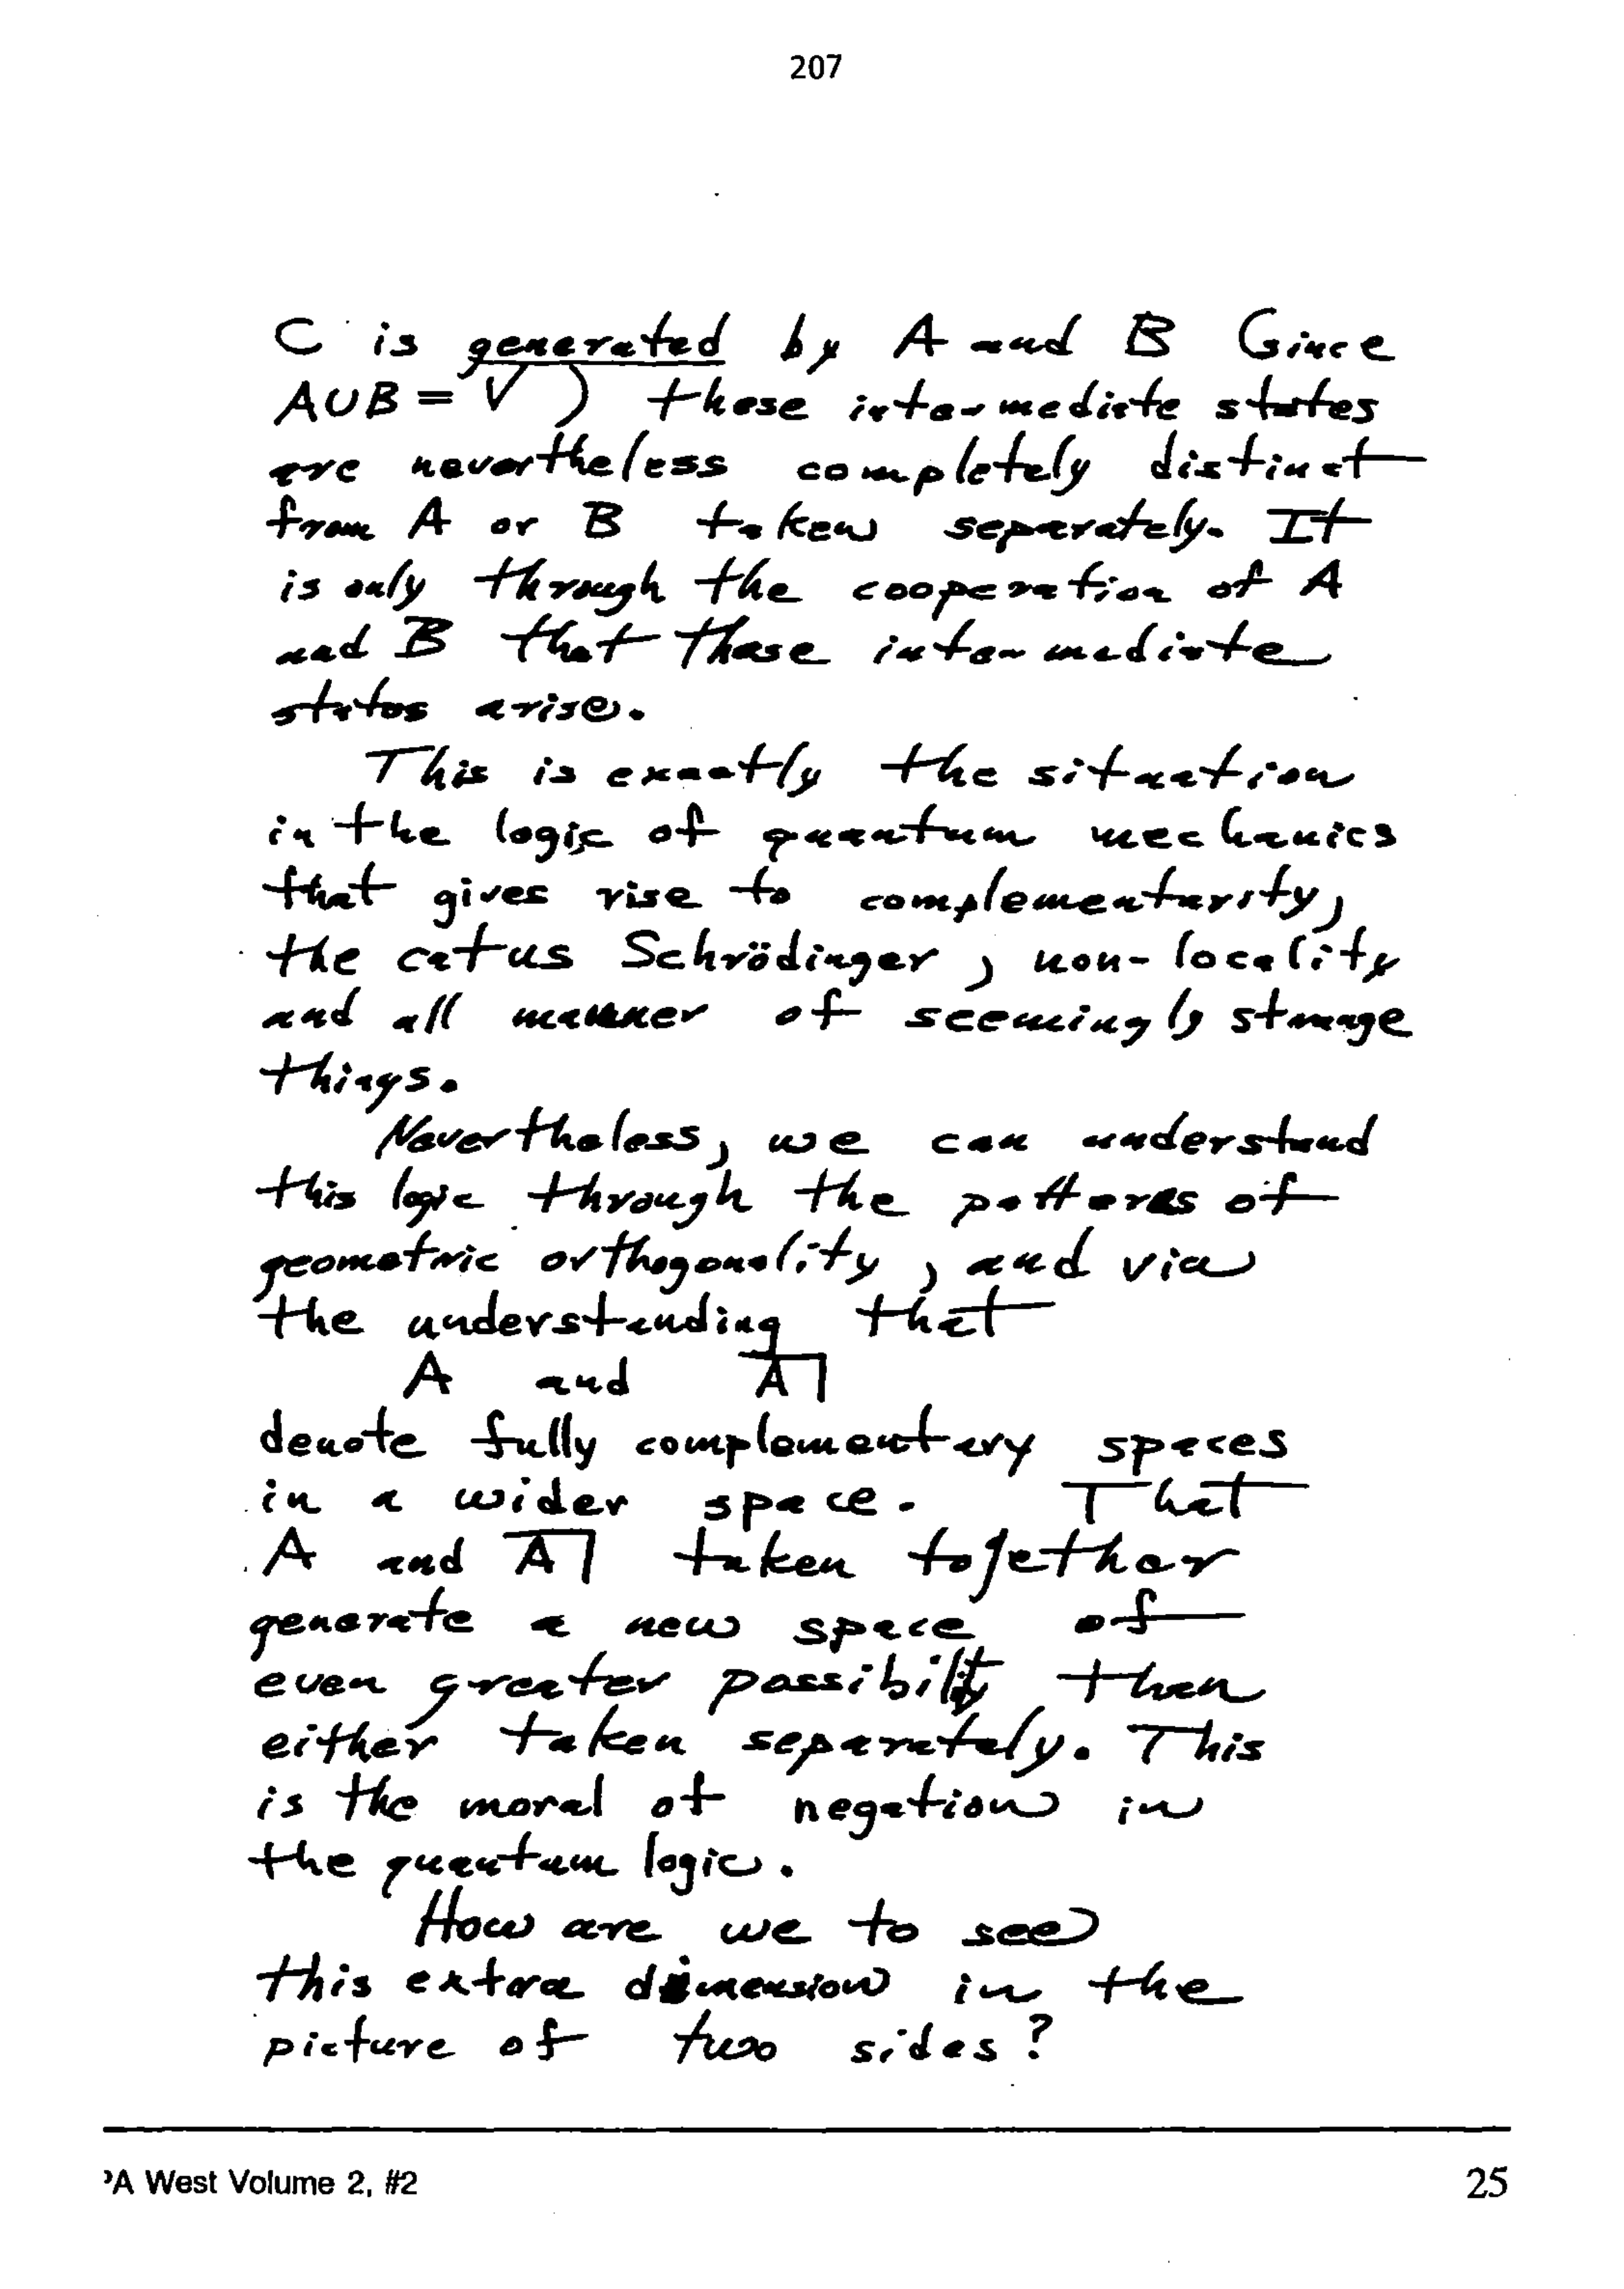 207
C is generated by A and B (since
A∪B = V) these intermediate states
are nevertheless completely distinct
from A or B taken separately. It
is only through the cooperation of A
and B that these intermediate
states arise.
This is exactly the situation
in the logic of quantum mechanics
that gives rise to complementarity,
the catus Schrödinger, non-locality
and all manner of seemingly strange
things.
Nevertheless, we can understand
this logic through the patterns of
geometric orthogonality, and via
the understanding that
A and A̅|
denote fully complementary spaces
in a wider space. That
A and A̅| taken together
generate a new space of
even greater possibilty than
either taken separately. This
is the moral of negation in
the quantum logic.
How are we to see
this extra dimension in the
picture of two sides?
'A West Volume 2, #2
25